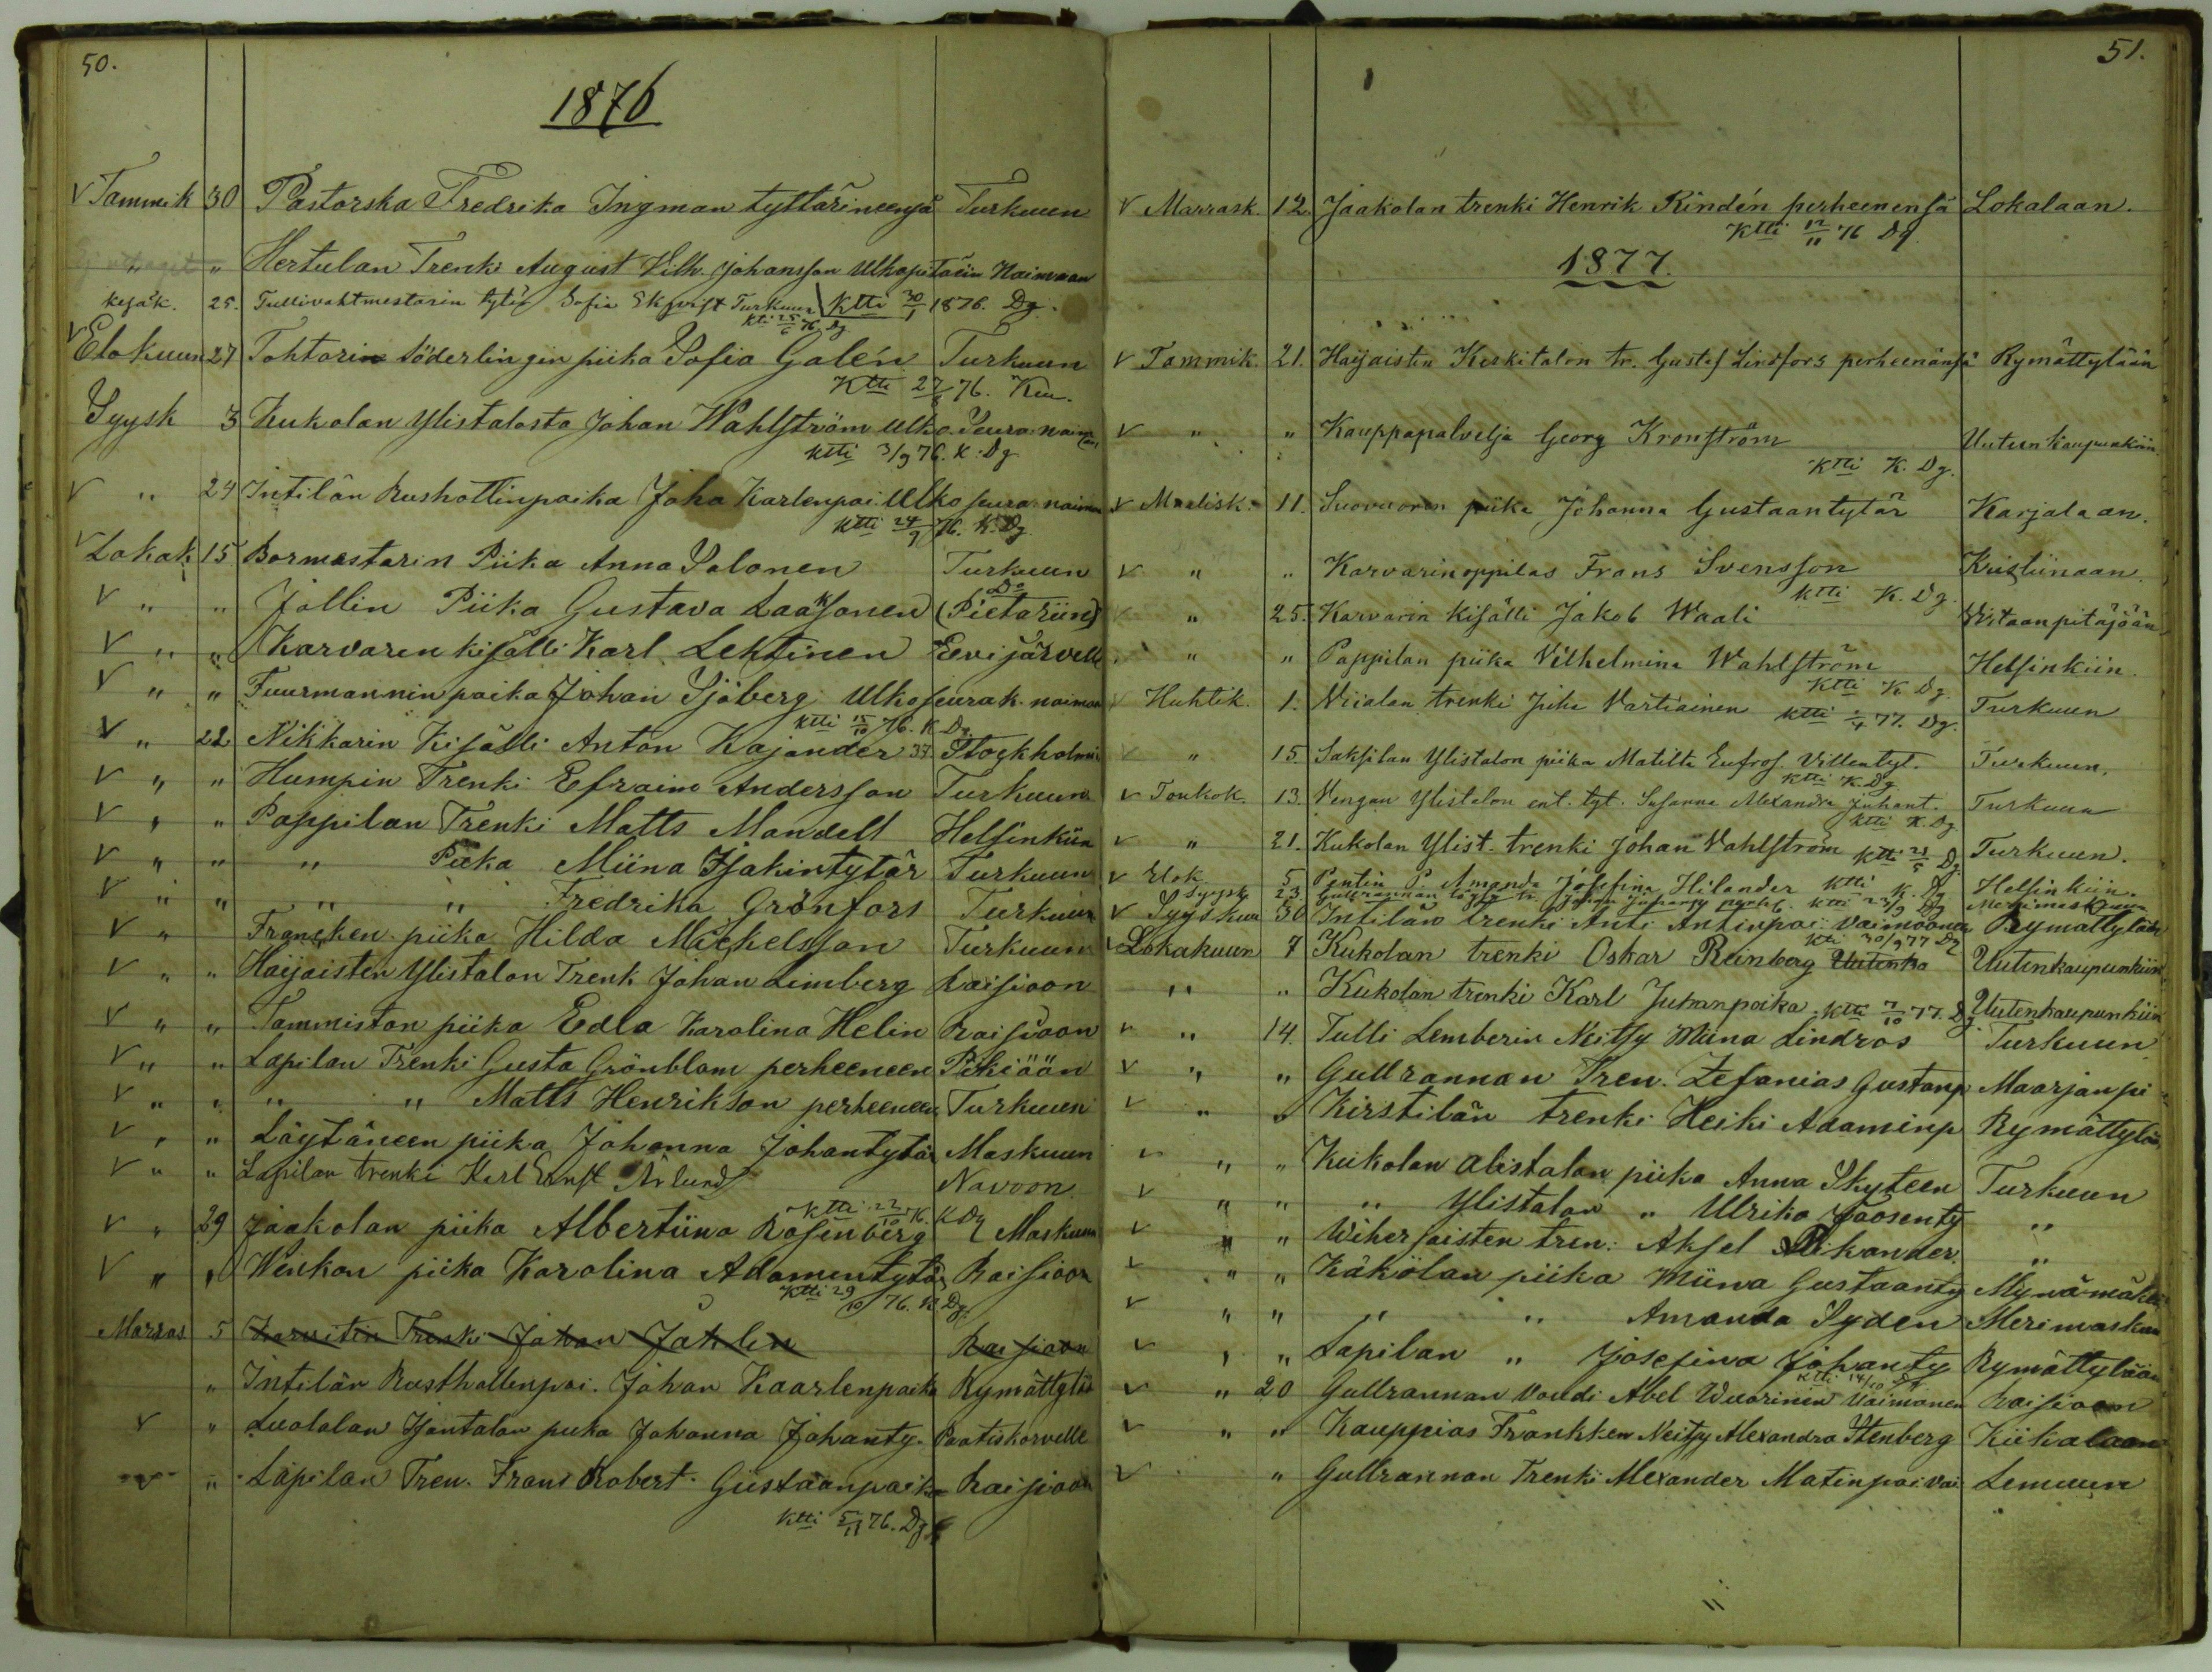 50.
1876
V Tammik 30 Pastorska Fredrika Ingman tyttärineensä Turkuun
" " Hertulan Trenki August Vilh. Johansson Ulkopitäiin Naimaan
kesäk. 25. Tullivahtmestarin tytär Sofia Ekqvist Turkuun Ktti 30/1 1876. Dg.
Ktti 25/6 76 Dg
V Elokuun 27 Tohtorin Söderlingin piika Sofia Galén Turkuun
Ktti 27/8 76.
Syysk 3 Kukolan Ylistalosta Johan Wahlström ulko Seura naim
ktti 3/9 76. K. Dg
V " 24 Intilän Rushollinpoika Joha Karlenpoi. Ulko seura naiman
ktti 24/9 76. K. Dg
V Lokak 15 Bormestarin Piika Anna Salonen Turkuun
V " " Jollin Piika Gustava Laaksonen Do (Pietariin)
V " " Karvaren kisälli Karl Lehtinen Eevijärvelle
V " " Fuurmannin poika Johan Sjöberg Ulkoseurak. naiman
ktti 15/10 76. K Dg.
V " 22 Nikkarin Kisälli Anton Kajander 37. Stockholmi
V " " Humpin Trenki Efraim Andersson Turkuun
V " " Pappilan Trenki Matts Mandell Helsinkiin
V " " " Piika Miina Isakintytär Turkuun
V " " " " Fredrika Grönfors Turkuun
V " " Francken piika Hilda Mickelsson Turkuun
V " " Haijaisten Ylistalon Trenk Johan Limberg Raisioon
V " " Tammiston piika Edla Karolina Helin Raisioon
V " " Lapilan Trenki Gusta Grönblom perheeneen Pikiöön
V " " " " Matts Henrikson perheeneen Turkuun
V " " Läytäneen piika Johanna Johantytär Maskuun
V " " Lapilan trenki Karl Ernst Ärlund Navoon
ktti 22/10 76. K Dg
V " 29 Jaakolan piika Albertiina Rosenberg Maskuun
V " " Weikon piika Karolina Adamintytär Raisioon
Ktti 29/10 76. K Dg.
Marras 5 Trenki Johan Jahlen Raisioon
" Intilän Rusthollenpoi. Johan Kaarlenpoika Rymättylä
V " Luolalan Isontalon piika Johanna Johanty. Paatiskorvelle
V " Lapilan Tren. Frans Robert Gustaanpoika Raisioon
ktti 5/11 76. Dg
51.
V Marrask. 12. Jaakolan trenki Henrik Rindén perheenensä Lokalaan.
Ktti 12/11 76 Dg
1877.
V Tammik. 21. Haijaisten Keskitalon tr. Gustaf Lindfors perheenänsä Rymättylään
V " " Kauppapalvelja Georg Kronström Uuteenkaupunkiin
Ktti K. Dg.
V Maalisk. 11. Suovuoren piika Johanna Gustaantytär Karjalaan.
V " " Karvarinoppilas Frans Svensson Kristiinaan.
ktti K. Dg.
V " 25. Karvarin kisälli Jakob Waali Witaanpitäjöän
" " Pappilan piika Vilhelmina Wahlström Helsinkiin.
Ktti K Dg.
V Huhtik. 1. Viialan trenki Juha Vartiainen ktti 1/4 77. Dg. Turkuun
V " 15 Saksilan Ylistalon piika Matilta Eufros. Villentyt. Turkuun.
Ktti K. Dg
V Toukok. 13. Vengan Ylistalon ent. tyt. Susanna Alexandra Juhant. Turkuun
ktti K. Dg
V " 21. Kukolan Ylist. trenki Johan Vahlström ktti 21/5 Dg Turkuun.
V Elok 5 Pentin P. Amanda Josefina Hilander ktti K. Dg Helsinkiin.
Syysk 23 Gullrannan ktti 23/9 Dg Merimaskuun
V Syyskuu 30 Intilan trenki Anti Antinpoi vaimoonen Rymättylään
Ktti 30/9 77 Dg
V Lokakuun 7 Kukolan trenki Oskar Reinberg Uutenka Uutenkaupunkiin
" " Kukolan trenki Karl Juhanpoika ktti 7/10 77. Dg Uutenkaupunkiin
V " 14. Tulli Lemberin Neitsy Miina Lindros Turkuun
V " " Gullrannan Tren. Zefanias Gustanp Maarjanpi
V " " Kirstilän trenki Heiki Adaminp Rymättylä
V " " Kukolan alistalon piika Anna Skyteen Turkuun
V " " " Ylistalon " Ulrika Joosenty "
V " " Wiherjaisten tren: Aksel Wikander. "
V " " Käkölan piika Miina Gustaanty Mynämäki
V " " " " Amanda Syden Merimaskun
V " " Lapilan " Josefina Johanty Rymättylään
ktti 14/10 Dg
V " 20 Gullrannan voudi Abel Wuorinen Vaimonen Raisioon
V " " Kauppias Frankken Neitsy Alexandra Stenberg Kiikalaan
V " Gullrannan Trenki Alexander Matinpoi. Vai Lemuun